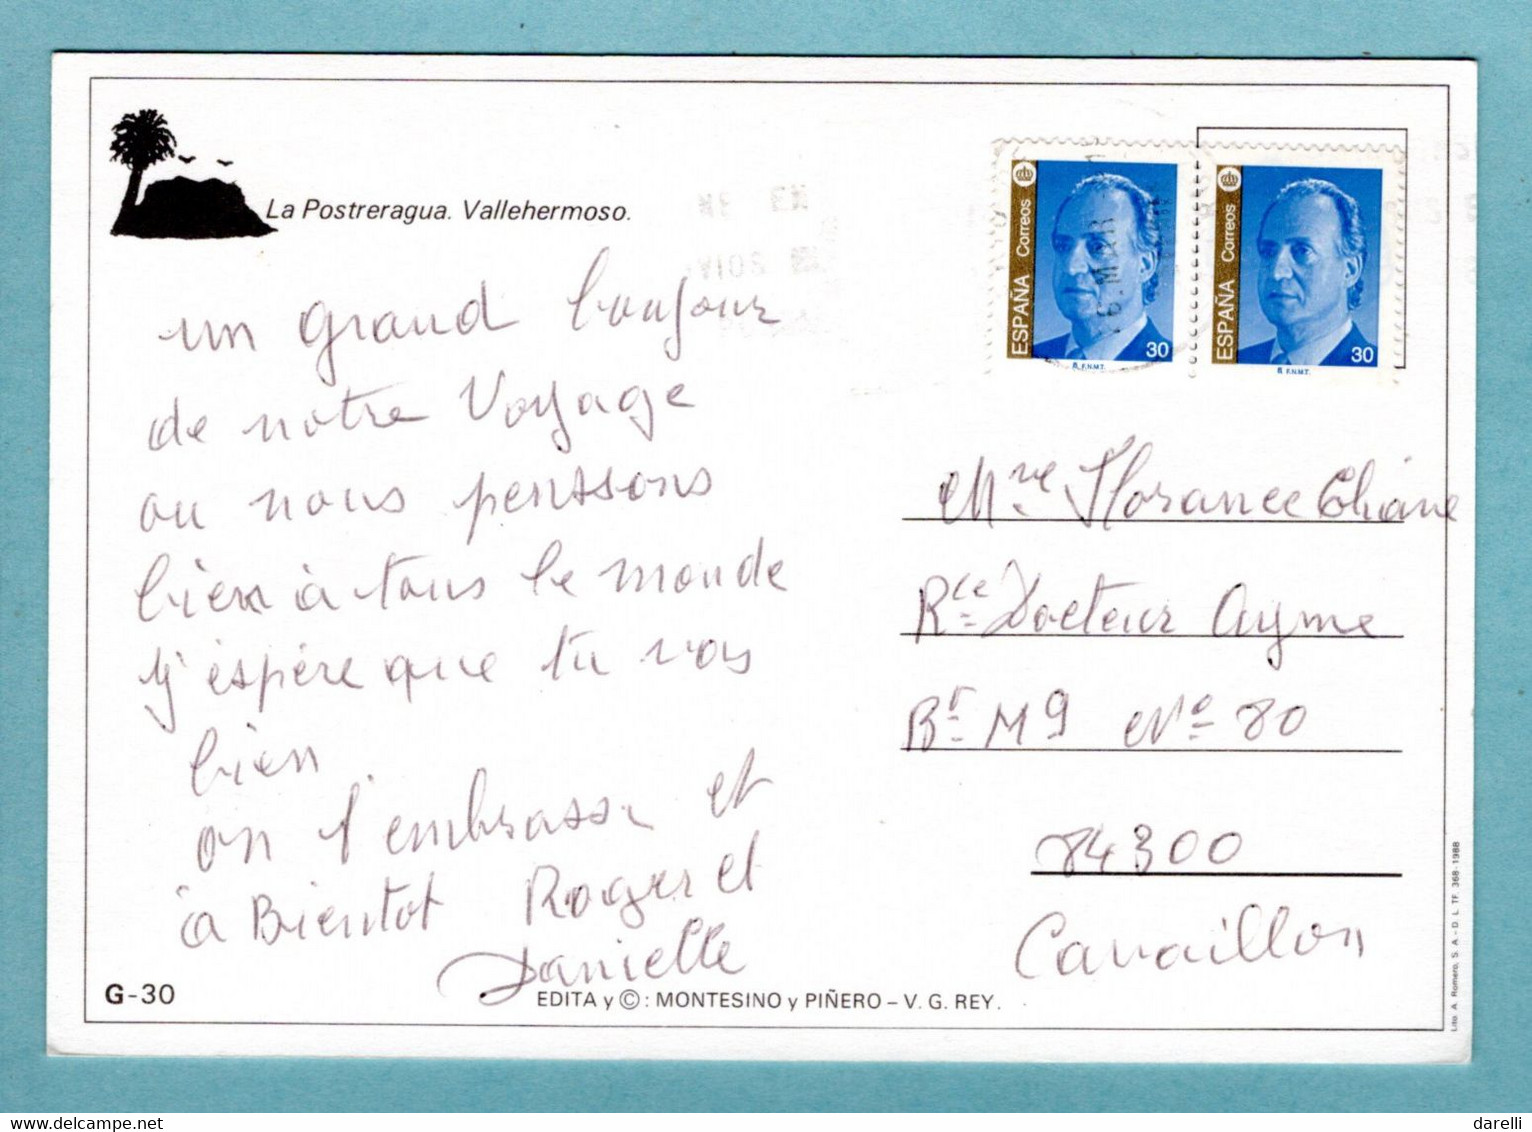 La Postreragua. Vallehermoso.
un grand bonjour
de notre Voyage
ou nous penssons
bien à tous le monde
j'espère que tu vas
bien
on t'embrasse et
à Bientot Roger et
Danielle
G-30
EDITA y © : MONTESINO y PIÑERO – V. G. REY.
ESPAÑA Correos
30
R F.N.M.T.
ESPAÑA Correos
30
R F.N.M.T.
6.MAR
Mme Florance Eliane
Rce Docteur Ayme
Bt M9 No 80
84300
Cavaillon
Lito. A. Romero, S. A. - D. L. TF. 368-1988
darelli